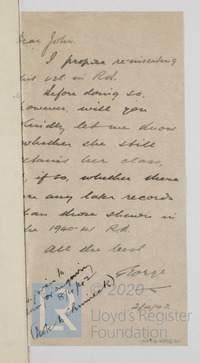 Dear John.
I propose reinserting
his vsl in R.B.
Before doing so,
however, will you
kindly let me know
whether she still
retains her class,
& if so, whether there
are any later records
than those shewn in
the 1940-41 R.B.
All the best
George
2/4/42
8/4/42
© 2020
Lloyd's Register
Foundation